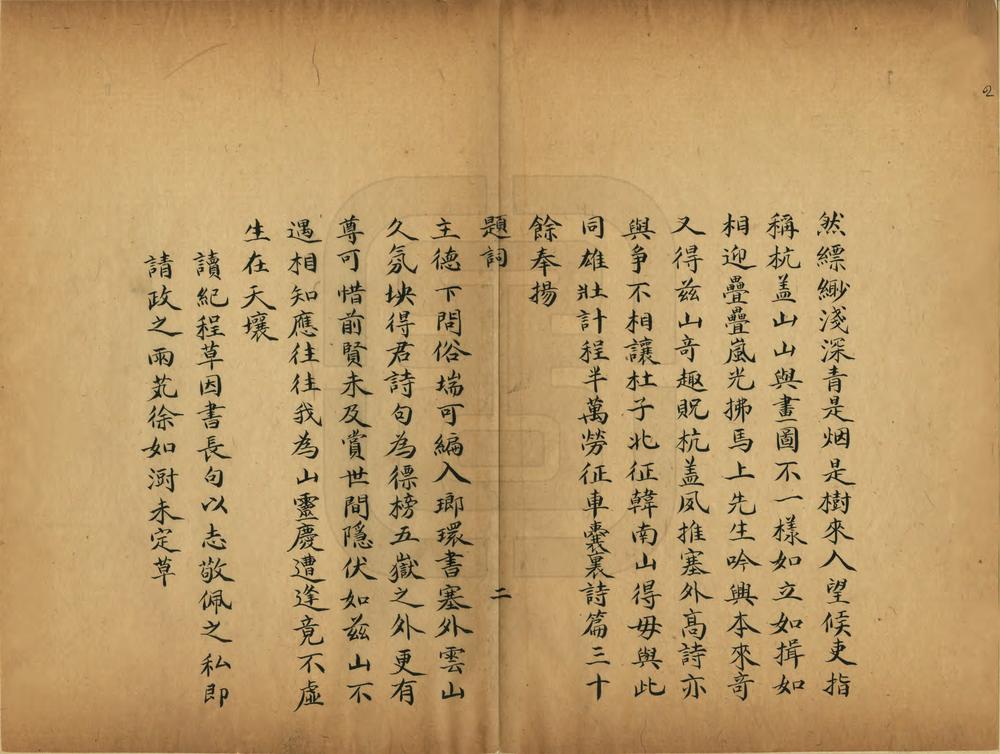 2
然縹緲淺深青是烟是樹來入望候吏指
稱杭盖山山與畫圖不一樣如立如揖如
相迎疊疊嵐光拂馬上先生吟興本來奇
又得兹山奇趣貺杭盖夙推塞外高詩亦
與爭不相讓杜子北征韓南山得毋與此
同雄壯計程半萬勞征車囊裏詩篇三十
餘奉揚
題詞
二
主德下問俗端可編入瑯環書塞外雲山
久氛坱得君詩句為標榜五嶽之外更有
尊可惜前賢未及賞世間隱伏如兹山不
遇相知應往往我為山靈慶遭逢竟不虛
生在天壤
讀紀程草因書長句以志敬佩之私即
請政之雨芃徐如澍未定草